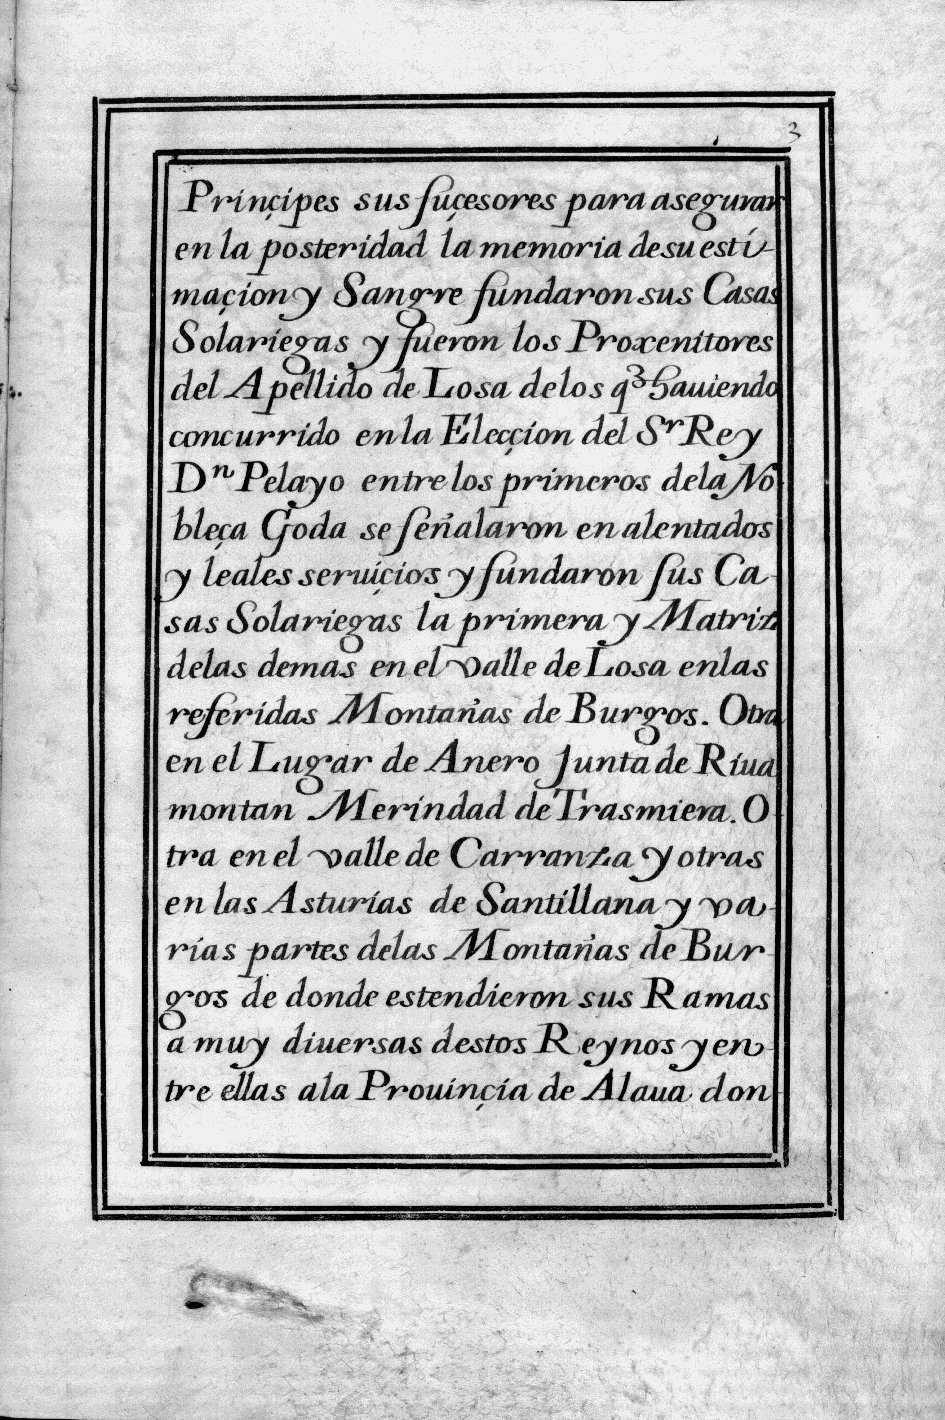 3
Prinçipes sus suçesores para asegurar
en la posteridad la memoria de su esti-
maçion y Sangre fundaron sus Casas
Solariegas y fueron los Proxenitores
del Apellido de Losa de los q͛ hauiendo
concurrido en la Elecçion del Sʳ Rey
Dⁿ Pelayo entre los primeros de la No
bleça Goda se señalaron en alentados
y leales seruiçios y fundaron sus Ca-
sas Solariegas la primera y Matriz
de las demas en el valle de Losa en las
referidas Montañas de Burgos. Otra
en el Lugar de Anero Junta de Riua
montan Merindad de Trasmiera. O
tra en el valle de Carranza y otras
en las Asturias de Santillana y va-
rias partes de las Montañas de Bur-
gos de donde estendieron sus Ramas
a muy diuersas destos Reynos y en-
tre ellas a la Prouinçia de Alaua don-